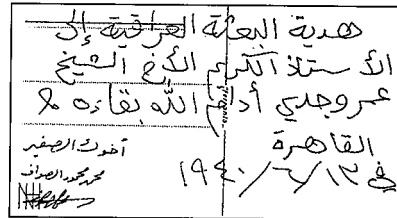 هدية البعثة العراقية إلى
الأستاذ الكريم الأخ الشيخ
عمر وجدي أدام الله بقاءه
القاهرة
في ١٣/٦/١٩٤٠
أخوك الصغير
محمد محمود الصواف